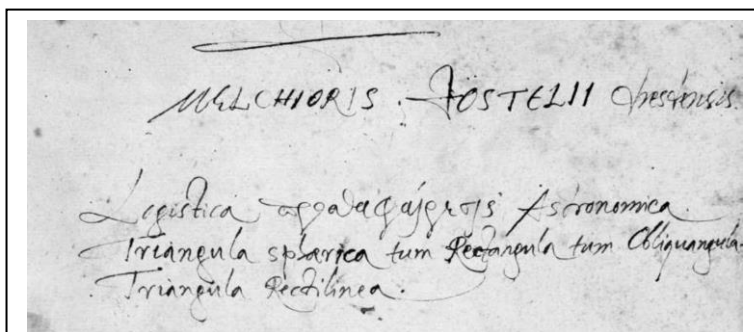 MELCHIORIS . JOSTELII Dresdensis.
Logistica προσθαφαίρεσις Astronomica.
Triangula sphærica tum Rectangula tum Obliquangula.
Triangula Rectilinea.